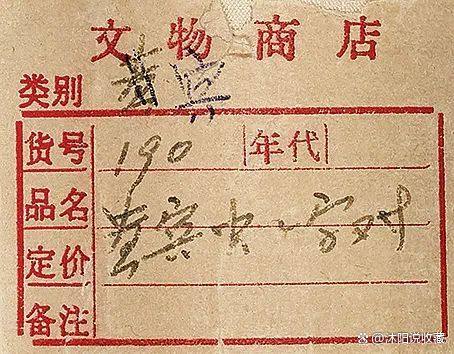 文物商店
类别
货号 190 年代
品名 字对
定价
备注
沐阳说收藏